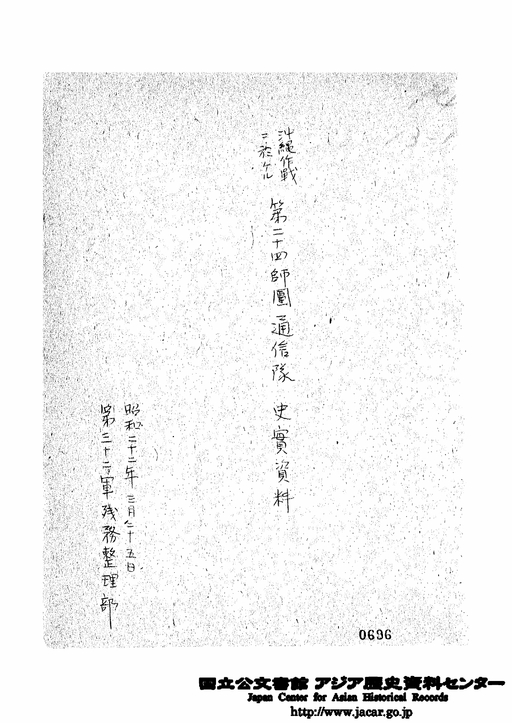 沖繩作戰
ニ於ケル
第二十四師團通信隊 史實資料
昭和二十二年三月二十五日
第三十二軍残務整理部
0696
国立公文書館 アジア歴史資料センター
Japan Center for Asian Historical Records
http://www.jacar.go.jp